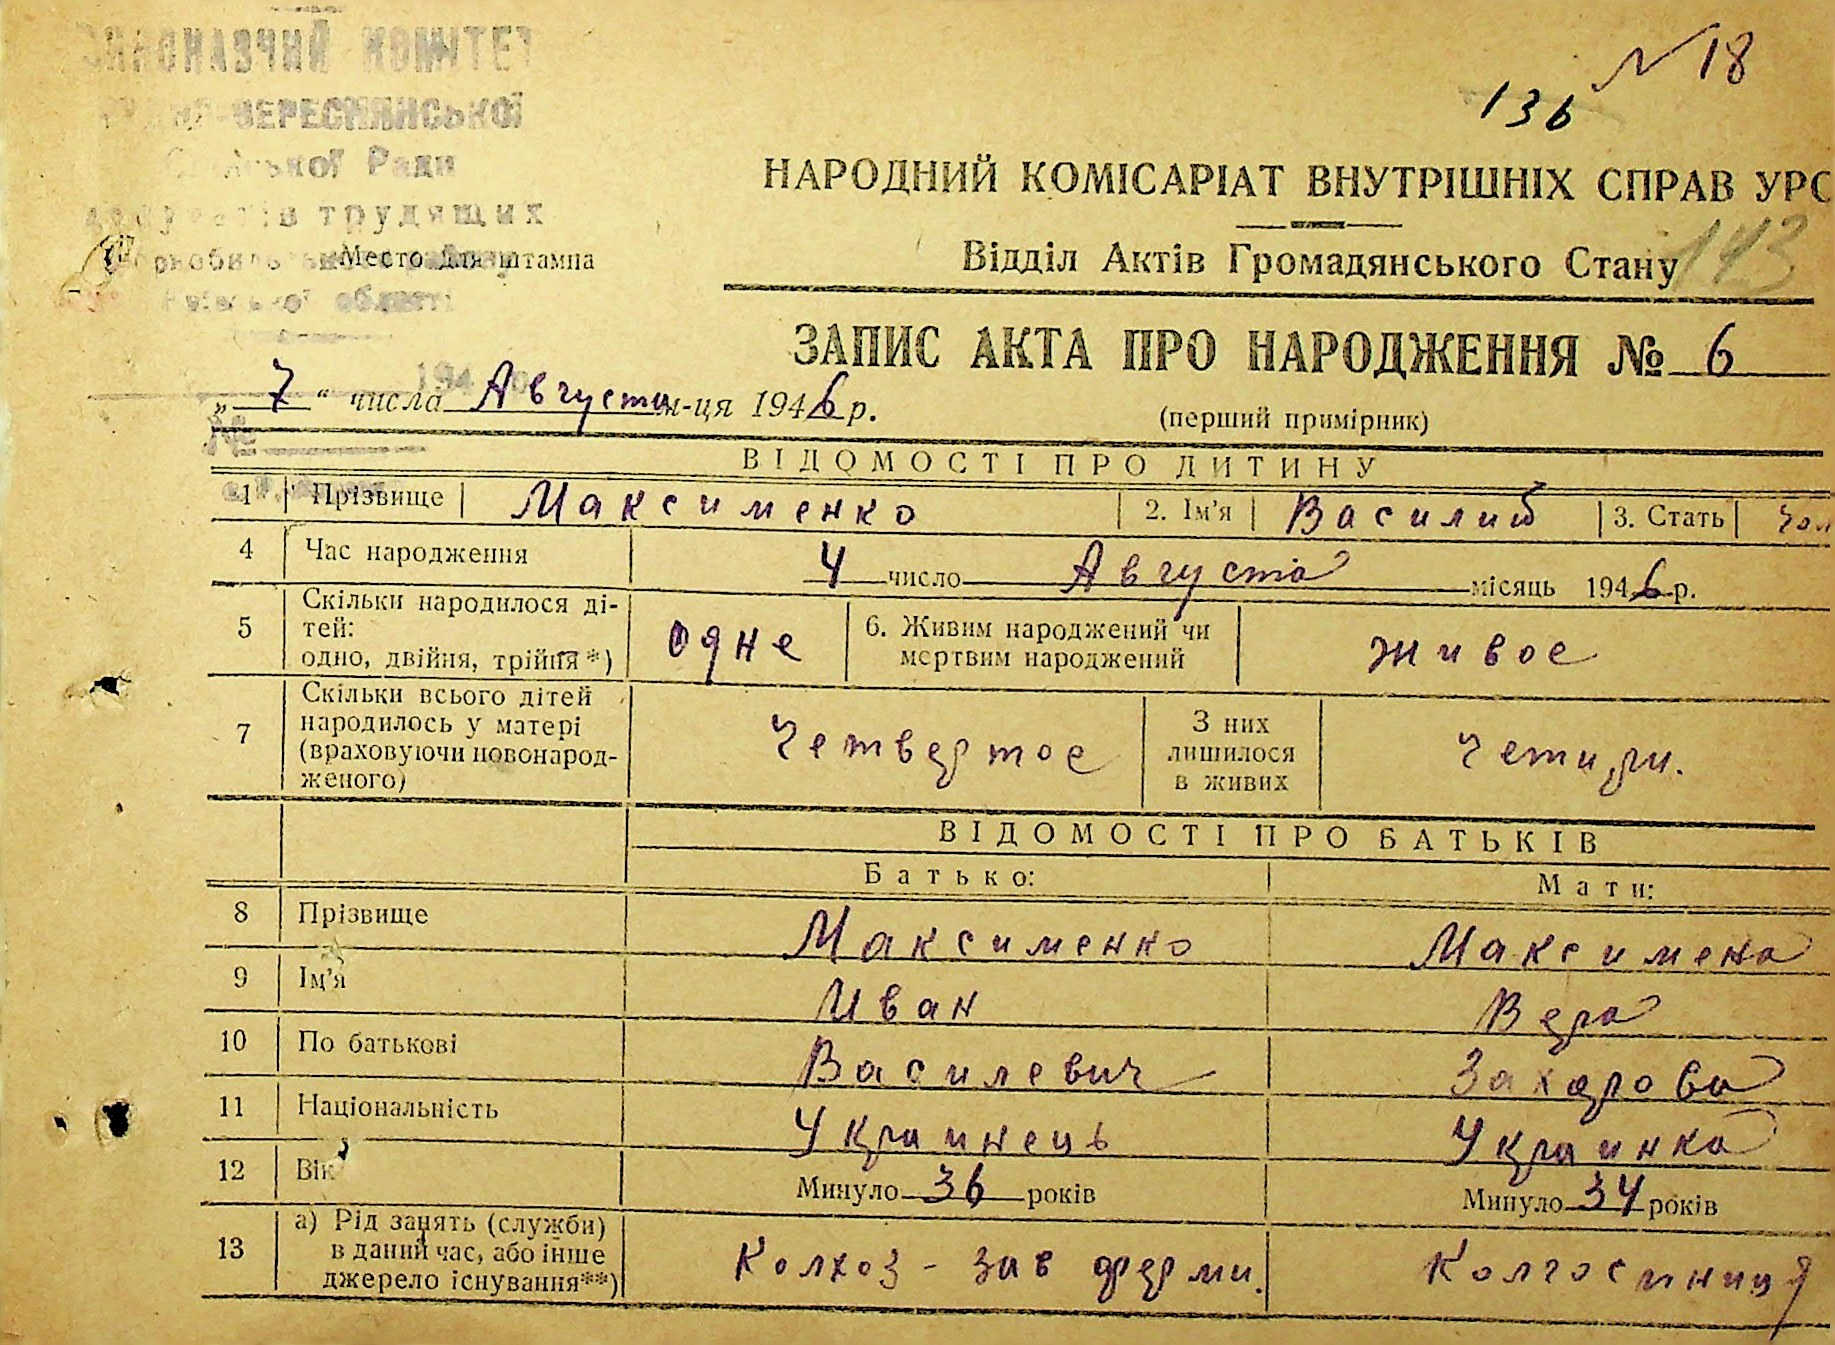 КОМІТЕТ
Ради
трудящих
області
№ 18
136
НАРОДНИЙ КОМІСАРІАТ ВНУТРІШНІХ СПРАВ УРС
143
Место для штампа
Відділ Актів Громадянського Стану
ЗАПИС АКТА ПРО НАРОДЖЕННЯ № 6
„ 7 “ числа Августа м-ця 1946 р.
(перший примірник)
№
ВІДОМОСТІ ПРО ДИТИНУ
1 Прізвище Максименко 2. Ім'я Василий 3. Стать Чол
4 Час народження 4 число Августа місяць 1946 р.
5 Скільки народилося ді-
тей:
одно, двійня, трійня *) одне 6. Живим народжений чи
мертвим народжений живое
7 Скільки всього дітей
народилось у матері
(враховуючи новонарод-
женого) Четвертое З них
лишилося
в живих Четири.
ВІДОМОСТІ ПРО БАТЬКІВ
Батько: Мати:
8 Прізвище Максименко Максимена
9 Ім'я Иван Вера
10 По батькові Василевич Захарова
11 Національність Украинець Украинка
12 Вік Минуло 36 років Минуло 34 років
13 а) Рід занять (служби)
в даний час, або інше
джерело існування**) Колхоз - зав ферми. Колгоспниця